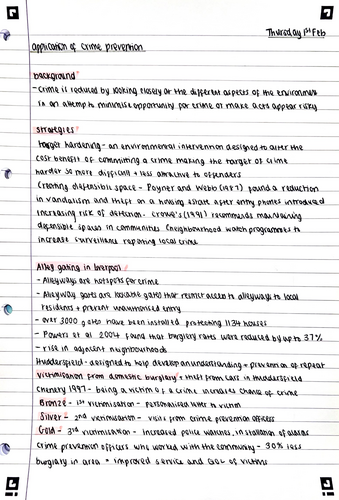 Thursday 1st Feb
application of crime prevention
background
- Crime is reduced by looking closely at the different aspects of the environment
in an attempt to minimise opportunity for crime or make acts appear risky
strategies
target hardening - an environmental intervention designed to alter the
cost benefit of committing a crime making the target of crime
harder so more difficult + less attractive to offenders
Creating defensible space - Poyner and Webb (1987) found a reduction
in vandalism and theft on a housing estate after entry phones introduced
increasing risk of detection. Crowe's (1991) recommends maintaining
defensible spaces in communities (neighbourhood watch programmes to
increase surveillance reporting local crime
Alley gating in Liverpool
- Alleyways are hotspots for crime
- Alleyway gates are lockable gates that restrict access to alleyways to local
residents + prevent unauthorised entry
- over 3000 gates have been installed protecting 1134 houses
- Powers et al 2004 found that burglary rates were reduced by up to 37%
- rise in adjacent neighbourhoods
Huddersfield - designed to help develop an understanding + prevention of repeat
victimisation from domestic burglary + theft from cars in Huddersfield
1997 - being a victim of a crime increases chance of crime
Bronze - 1st victimisation - personalised letter to victim
Silver - 2nd victimisation - visits from crime prevention officers
Gold - 3rd victimisation - increased police watches, installation of alarms
Crime prevention officers who worked with the community - 30% less
burglary in area + improved service and QOL of victims